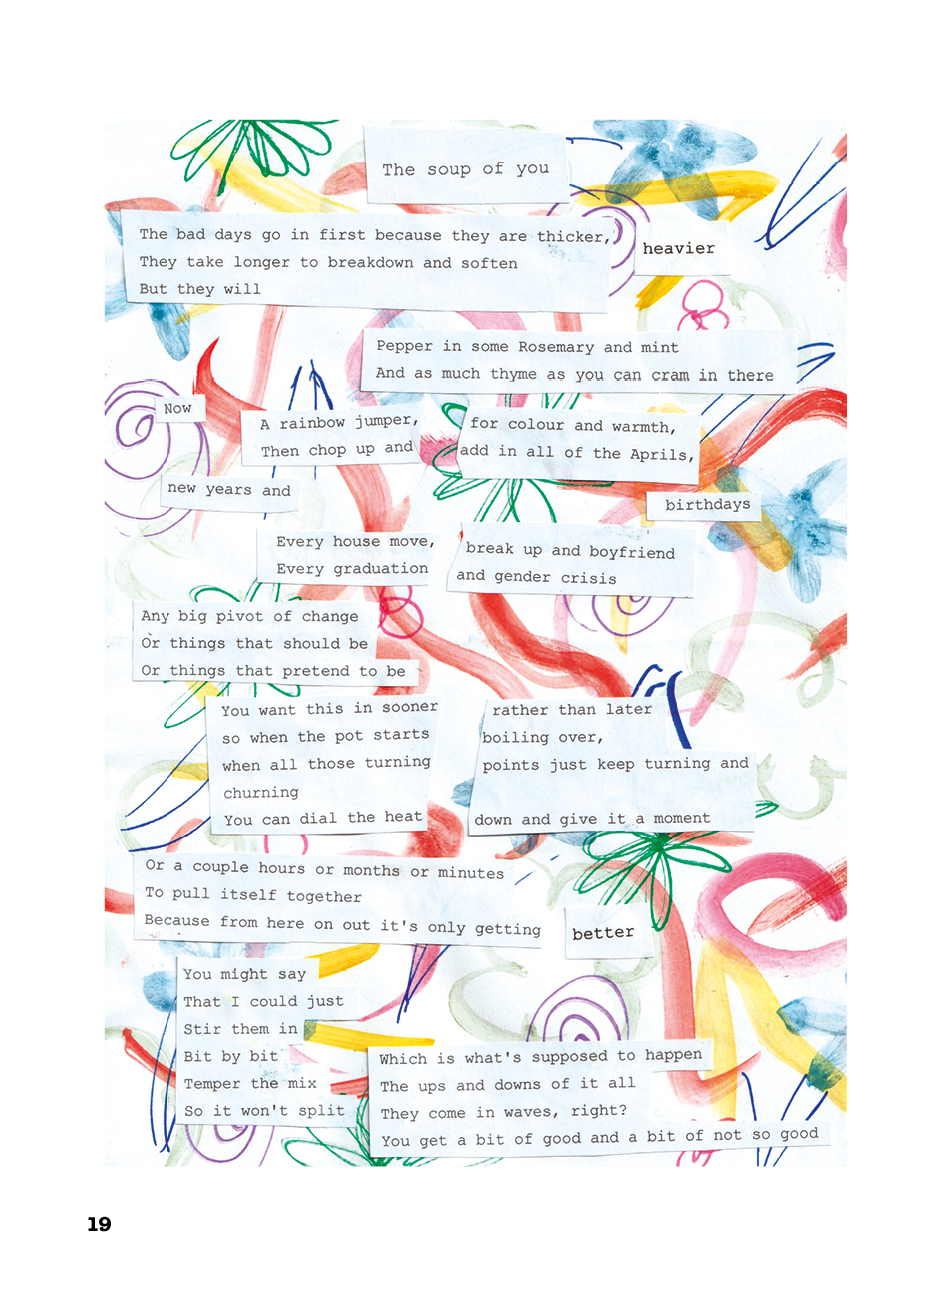 The soup of you
The bad days go in first because they are thicker, heavier
They take longer to breakdown and soften
But they will
Pepper in some Rosemary and mint
And as much thyme as you can cram in there
Now
A rainbow jumper, for colour and warmth,
Then chop up and add in all of the Aprils,
new years and birthdays
Every house move, break up and boyfriend
Every graduation and gender crisis
Any big pivot of change
Or things that should be
Or things that pretend to be
You want this in sooner rather than later
so when the pot starts boiling over,
when all those turning points just keep turning and
churning
You can dial the heat down and give it a moment
Or a couple hours or months or minutes
To pull itself together
Because from here on out it's only getting better
You might say
That I could just
Stir them in
Bit by bit
Temper the mix
So it won't split
Which is what's supposed to happen
The ups and downs of it all
They come in waves, right?
You get a bit of good and a bit of not so good
19